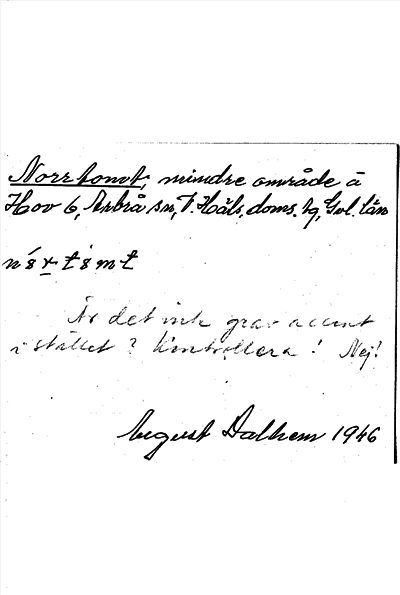 Norrtomt, mindre område å
Hov 6, Arbrå sn, V. Häls. doms. tg, Gvl. län
Är det inte grav accent
i stället? Kontrollera! Nej!
August Dalhem 1946